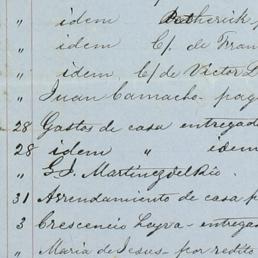 " idem
" idem C/. de Fran
" idem C/ de Victor L
" Juan Camacho - pag
28 Gastos de casa entregad
28 idem " idem
" G. J. Martinez del Rio.
31 Arrendamiento de casa p
3 Crescencio Leyva - entrega
" Maria de Jesus - por redito